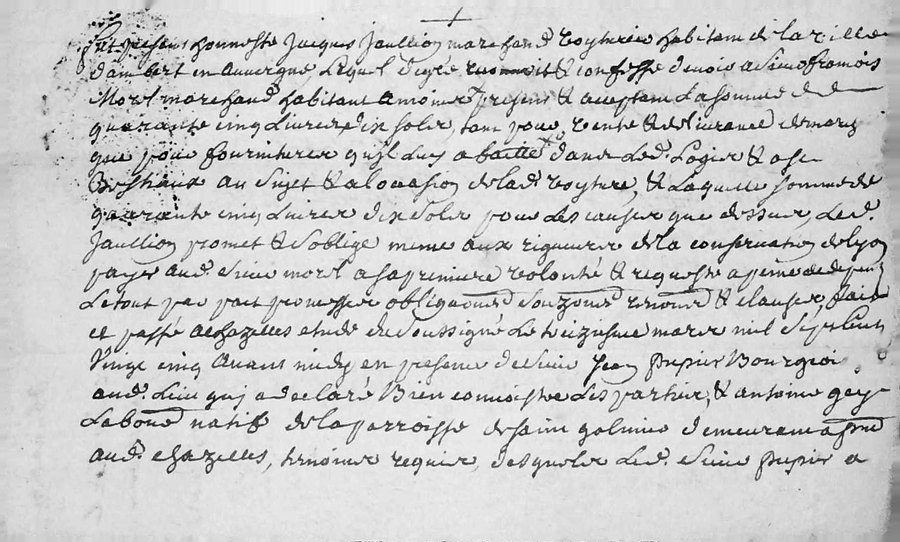 fut présens honneste Jacques Jaullion marchand voyturier habitant de la ville
dambert en auvergne Lequel de gré reconnoit & confesse devoir a Sieur francois
Morel marchand habitant a present & acceptant La somme de
quarante cinq Livres dix solz, tant pour vente & delivrance de
que pour fournitures quil luy a baillé dans Led. Logis & a ses
Bestiaux au Sujet & a locasion de lad. voyture, & Laquelle somme de
quarante cinq Livres dix Solz pour Les causes que dessus, Led.
Jaullion promet & soblige meme aux rigueurs de la conservation de lyon
payer aud. Sieur morel a sa premiere volonté & requeste a peine de
Le tout par pait promesses obligaons Souzmons renons & clauses, fait
et passé a chazelles etude du Soussigné Le treiziesme mars mil Sept cent
Vingt cinq avant midy en presence de Sieur Jean pupier Bourgeois
aud. Lieu quy a declaré Bien connoistre Les parties, & antoine
Laboure natif de la parroisse de saint galmier demeurant
aud. chazelles, temoins requis, desquels Led. Sieur pupier a